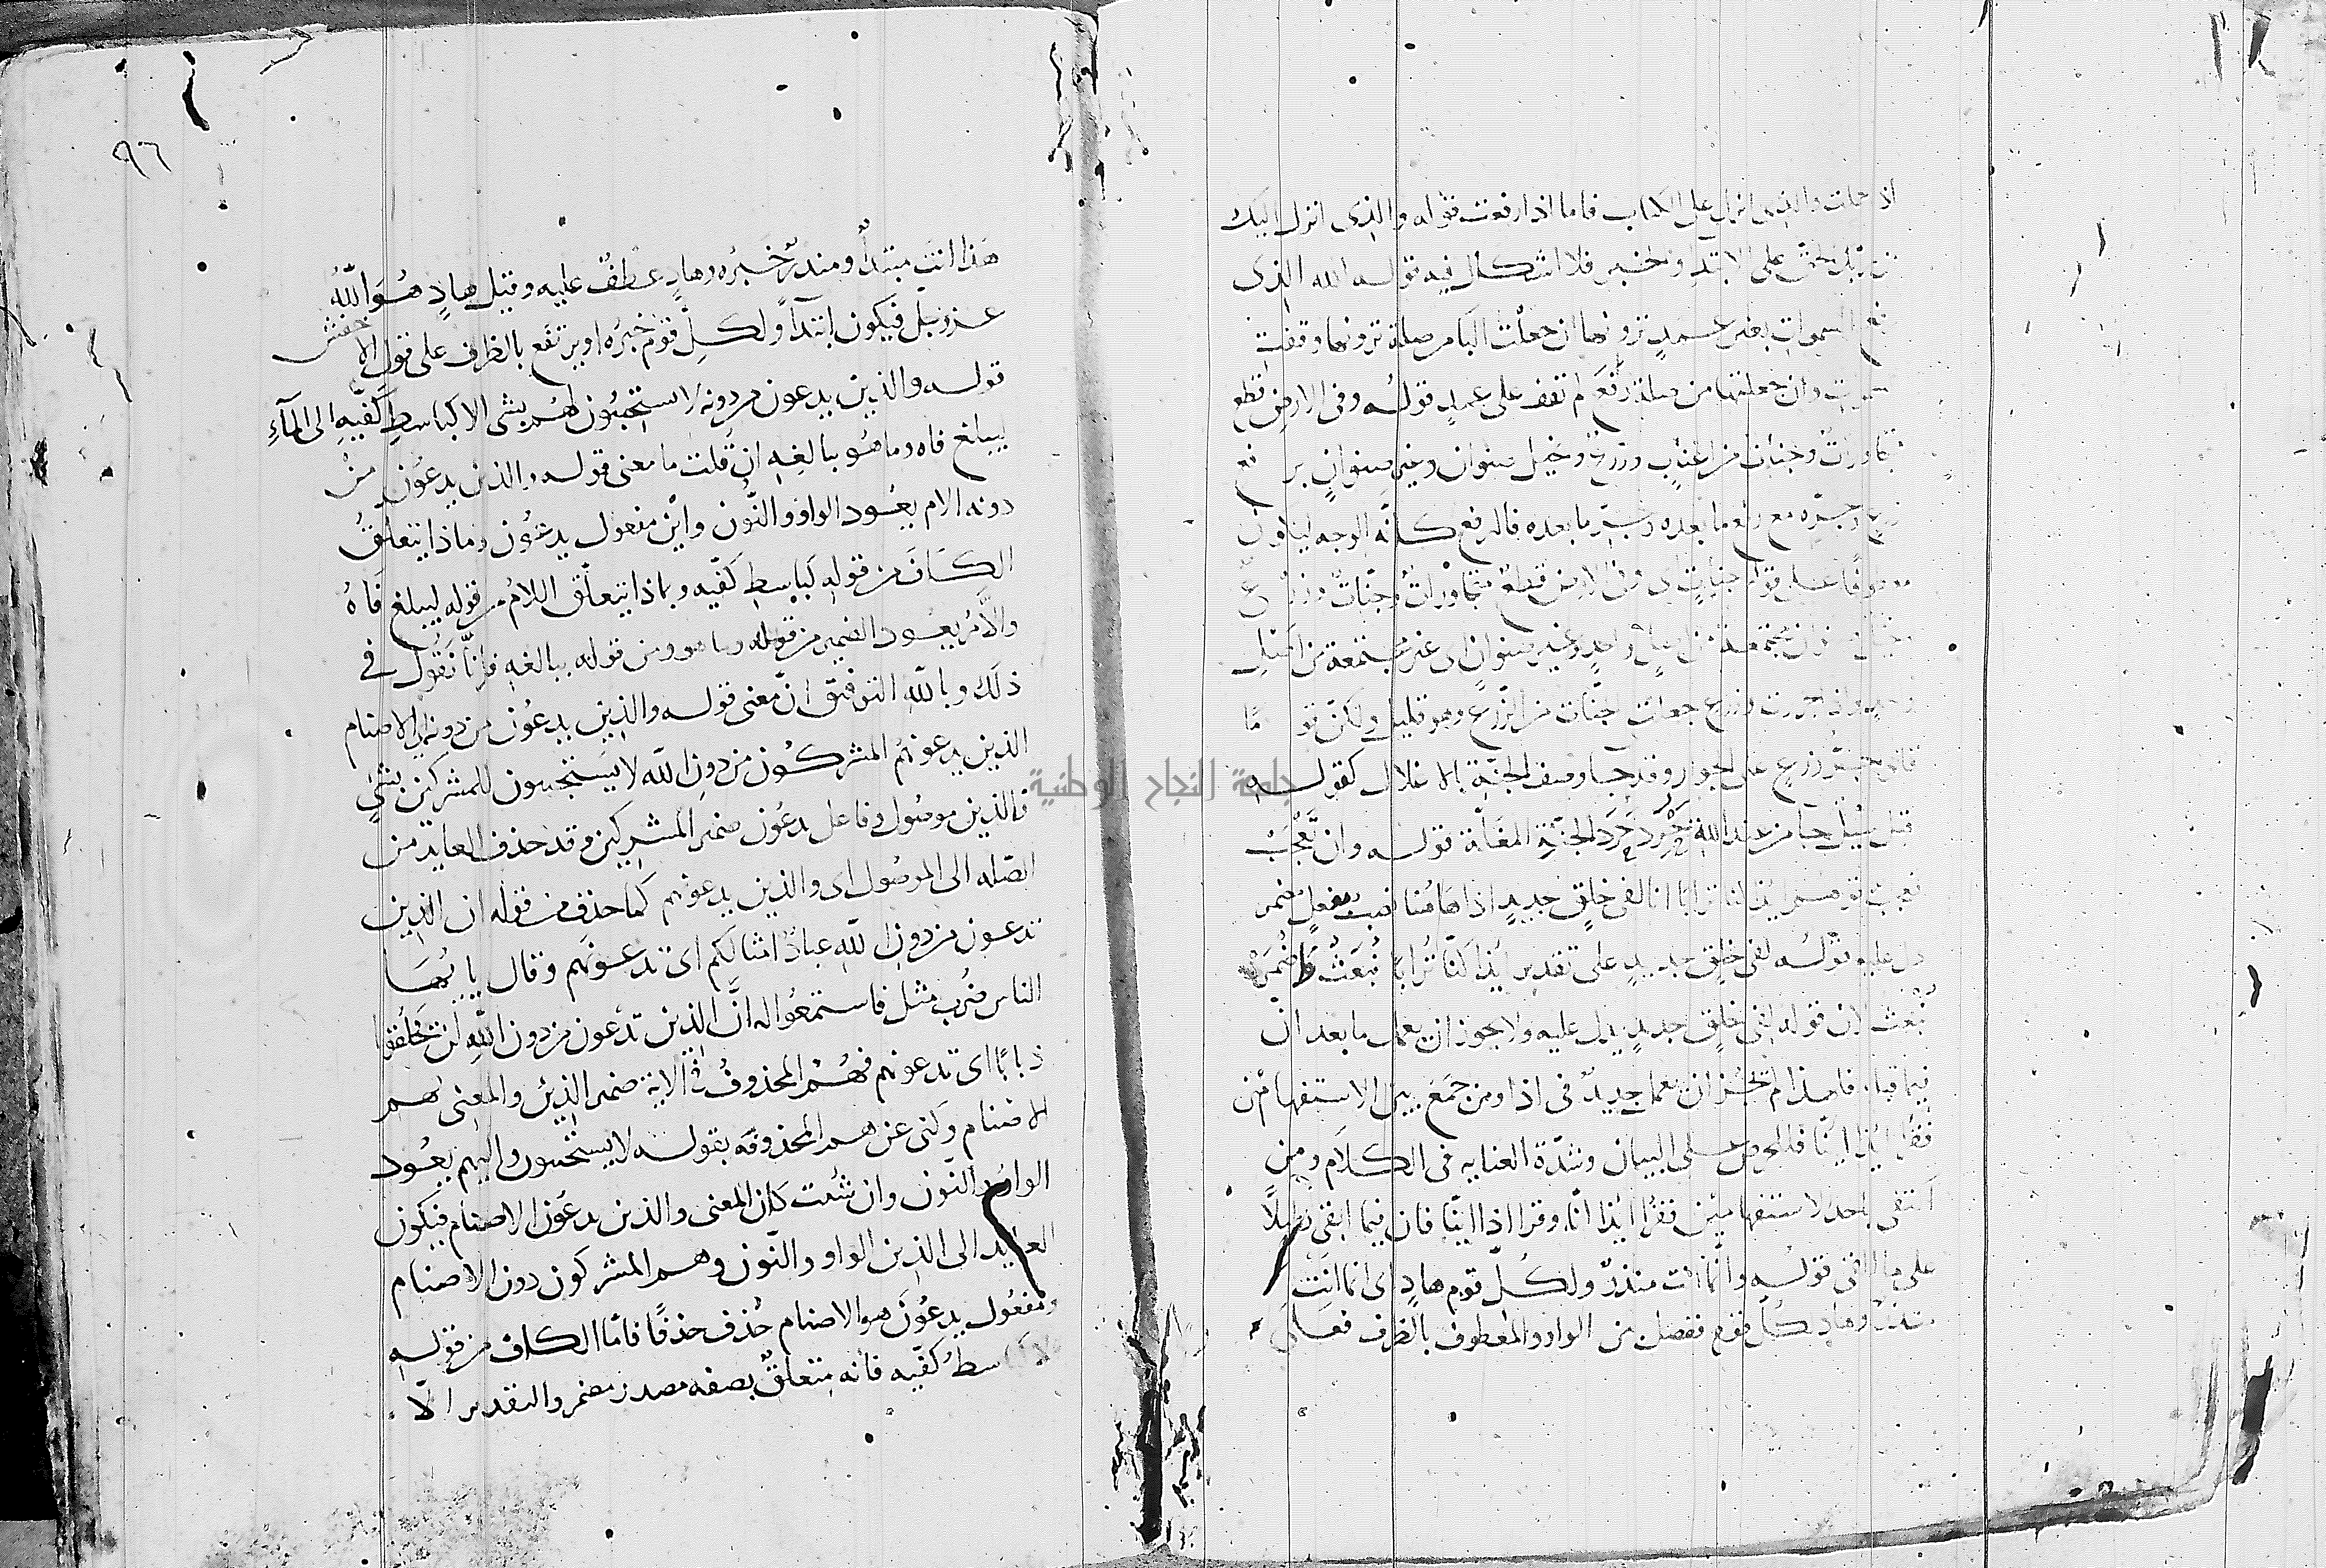 اذ حملت والذى انزل على الكتاب فاما اذا رفعت قوله والذى انزل اليك
من ربك الحق على الابتدا والخبر فلا اشكال فيه قوله الله الذى
رفع السموات بغير عمد ترونها ان جعلت البا من صلة ترونها وقفت
وان جعلتها من صلة رفع لم تقف على عمد قوله وفى الارض قطع
متجاورات وجنات من اعناب وزرع ونخيل صنوان وغير صنوان برفع
زرع وجره مع رفع ما بعده وجر ما بعده فالرفع كانه الوجه ليكون
معطوفا على قوله جنات اى وفى الارض قطع متجاورات وجنات وزرع
ونخيل صنوان مجتمعة من اصل واحد وغير صنوان اى غير مجتمعة من اصل
واحد وان جررت وزرع جعلت جنات من الزرع وهو قليل ولكن
وزرع على الجوار وقد جا وصف الجنة بالاغلال كقوله
سيل جا من عند الله يحرد حرد الجنة المغلة قوله وان تعجب
فعجب قولهم ايذا كنا ترابا انا لفى خلق جديد اذا هاهنا نصب بفعل مضمر
دل عليه قوله لفى خلق جديد على تقدير ايذا كنا ترابا نبعث واضمر
نبعث لان قوله لفى خلق جديد يدل عليه ولا يجوز ان يعمل ما بعد ان
فيما قبلها فلهذا لم يجز ان يعمل جديد فى اذا ومن جمع بين الاستفهامين
فقرا ايذا اينا فللحرص على البيان وشدة العناية فى الكلام ومن
اكتفى باحد الاستفهامين فقرا ايذا انا وقرا اذا اينا فان فيما ابقى دليلا
على ما القى قوله وانما انت منذر ولكل قوم هاد اى انما انت
منذر وهاد لكل قوم ففصل بين الواو والمعطوف بالظرف فعلى
٩٦
هذا انت مبتدأ ومنذر خبره وهاد عطف عليه وقيل هاد هو الله
عز وجل فيكون ابتدآ ولكل قوم خبره او يرتفع بالظرف على قول الاخفش
قوله والذين يدعون من دونه لا يستجيبون لهم بشى الا كباسط كفيه الى المآء
ليبلغ فاه وما هو ببالغه ان قلت ما معنى قوله والذين يدعون من
دونه الام يعود الواو والنون واين مفعول يدعون وماذا يتعلق
الكاف من قوله كباسط كفيه وبماذا يتعلق اللام من قوله ليبلغ فاه
والام يعود الضمير من قوله وما هو ومن قوله ببالغه فانا نقول فى
ذلك وبالله التوفيق ان معنى قوله والذين يدعون من دونه اى الاصنام
الذين يدعونهم المشركون من دون الله لا يستجيبون للمشركين بشىء
فالذين موصول وفاعل يدعون ضمير المشركين وقد حذف العايد من
الصله الى الموصول اى والذين يدعونهم كما حذف من قوله ان الذين
تدعون من دون الله عباد امثالكم اى تدعونهم وقال يايها
الناس ضرب مثل فاستمعوا له ان الذين تدعون من دون الله لن يخلقوا
ذبابا اى تدعونهم فهم المحذوف فى الاية ضمير الذين والمعنى هم
الاصنام وكنى عن هم المحذوفه بقوله لا يستجيبون واليهم يعود
الواو والنون وان شئت كان المعنى والذين يدعون الاصنام فيكون
العايد الى الذين الواو والنون وهم المشركون دون الاصنام
ومفعول يدعون هو الاصنام حذف حذفا فاما الكاف من قوله
الا كباسط كفيه فانه متعلق بصفه مصدر مضمر والتقدير الا
جامعة النجاح الوطنية